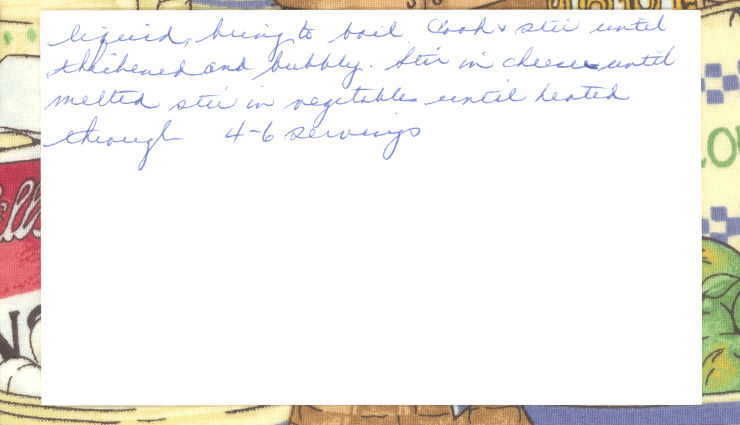 liquid, bring to boil. Cook & stir until
thickened and bubbly. Stir in cheese until
melted stir in vegetables until heated
through 4-6 servings